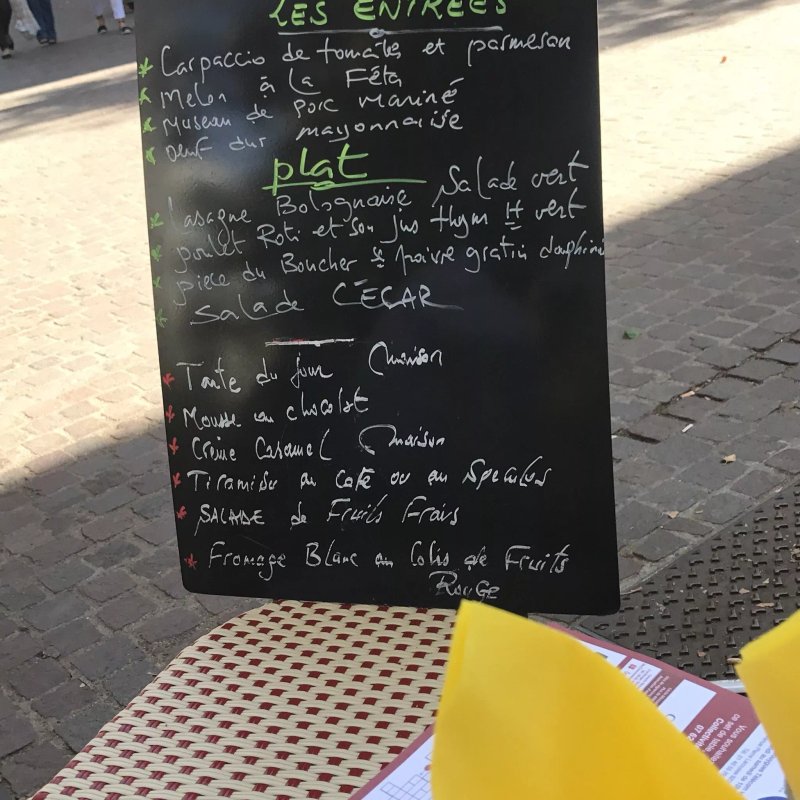 LES ENTREES
* Carpaccio de tomates et parmesan
* Melon à la Féta
* Museau de Porc Mariné
* Oeuf dur mayonnaise
plat
* Lasagne Bolognaise Salade vert
* poulet Roti et son jus thym H vert
* piece du Boucher sc poivre gratin dauphinoi
* Salade CÉCAR
* Tarte du jour Maison
* Mousse au chocolat
* Crème Caramel Maison
* Tiramisu au Café ou au Speculos
* SALADE de Fruits Frais
* Fromage Blanc au Colis de Fruits
Rouge
Vous souhaite